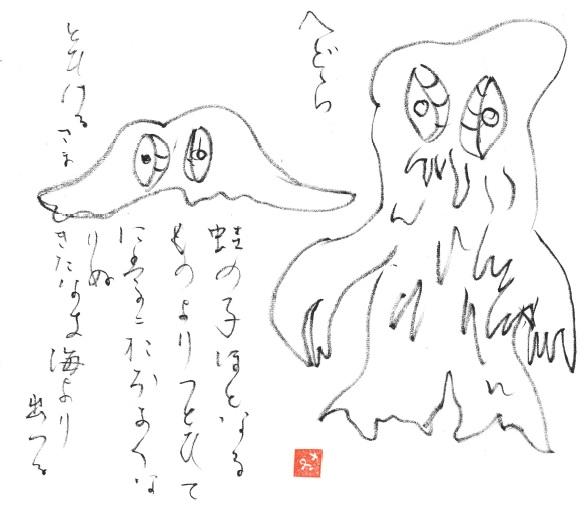 へどら
蛙の子ほとなる
ものよりつとひて
にはかにおほきくな
りぬ
きたなき海より
出つる
とひけるさま